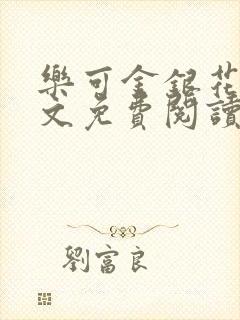 樂可金銀花
文免費閱讀
劉富良